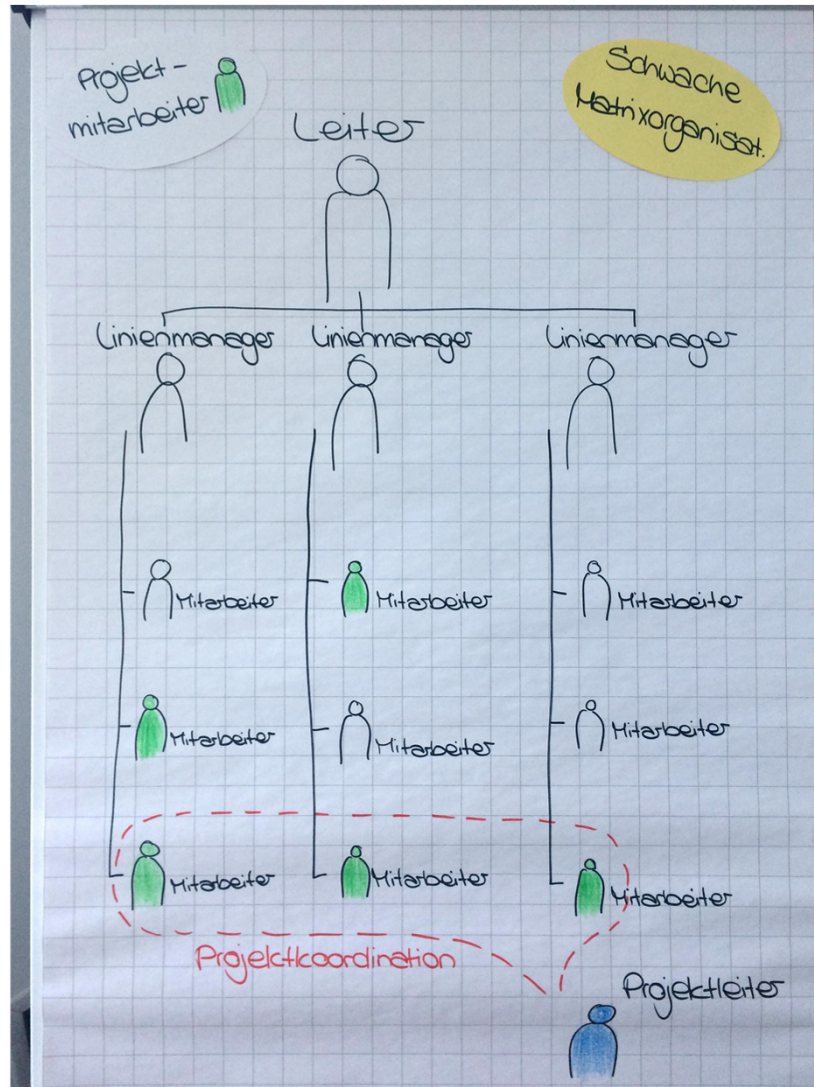 Projekt-
mitarbeiter
Schwache
Matrixorganisat.
Leiter
Linienmanager Linienmanager Linienmanager
Mitarbeiter Mitarbeiter Mitarbeiter
Mitarbeiter Mitarbeiter Mitarbeiter
Mitarbeiter Mitarbeiter Mitarbeiter
Projektkoordination
Projektleiter